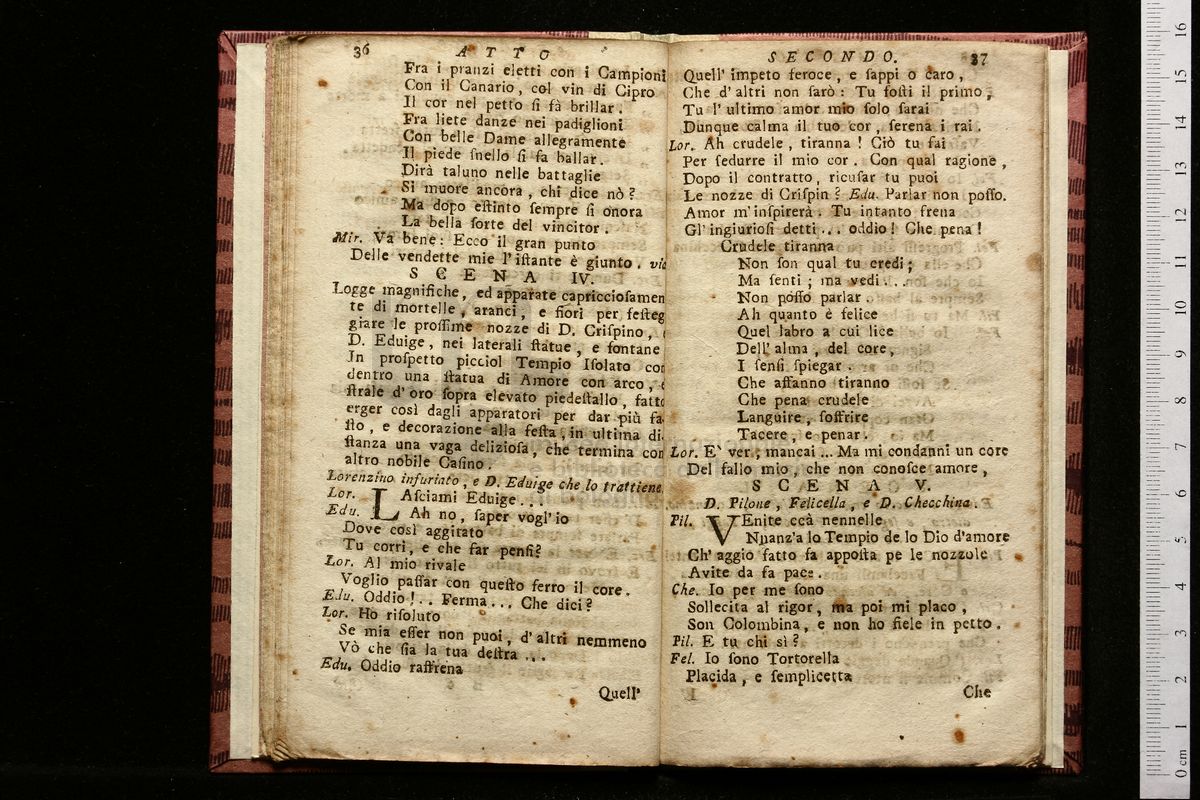 36 ATTO
Fra i pranzi eletti con i Campioni
Con il Canario, col vin di Cipro
Il cor nel petto ſi fà brillar.
Fra liete danze nei padiglioni
Con belle Dame allegramente
Il piede ſnello ſi fa ballar.
Dirà taluno nelle battaglie
Si muore ancora, chi dice nò?
Ma dopo eſtinto ſempre ſi onora
La bella ſorte del vincitor.
Mir. Va bene: Ecco il gran punto
Delle vendette mie l'iſtante è giunto. via
SCENA IV.
Logge magnifiche, ed apparate capriccioſamen
te di mortelle, aranci, e fiori per feſteg
giare le proſſime nozze di D. Criſpino,
D. Eduige, nei laterali ſtatue, e fontane
In proſpetto picciol Tempio Iſolato con
dentro una ſtatua di Amore con arco, e
ſtrale d'oro ſopra elevato piedeſtallo, fatto
erger così dagli apparatori per dar più fa
ſto, e decorazione alla feſta, in ultima di
ſtanza una vaga delizioſa, che termina con
altro nobile Caſino.
Lorenzino infuriato, e D. Eduige che lo trattiene
Lor. LAſciami Eduige...
Edu. Ah no, ſaper vogl'io
Dove così aggitato
Tu corri, e che far penſi?
Lor. Al mio rivale
Voglio paſſar con queſto ferro il core.
Edu. Oddio!.. Ferma... Che dici?
Lor. Ho riſoluto
Se mia eſſer non puoi, d'altri nemmeno
Vò che ſia la tua deſtra...
Edu. Oddio raffrena
Quell'
SECONDO. 37
Quell' impeto feroce, e ſappi o caro,
Che d'altri non ſarò: Tu foſti il primo,
Tu l'ultimo amor mio ſolo ſarai
Dunque calma il tuo cor, ſerena i rai.
Lor. Ah crudele, tiranna! Ciò tu fai
Per ſedurre il mio cor. Con qual ragione,
Dopo il contratto, ricuſar tu puoi
Le nozze di Criſpin? Edu. Parlar non poſſo.
Amor m'inſpirerà. Tu intanto frena
Gl'ingiurioſi detti... oddio! Che pena!
Crudele tiranna
Non ſon qual tu credi;
Ma ſenti; ma vedi...
Non poſſo parlar.
Ah quanto è felice
Quel labro a cui lice
Dell'alma, del core,
I ſenſi ſpiegar.
Che affanno tiranno
Che pena crudele
Languire, ſoffrire
Tacere, e penar.
Lor. E' ver, mancai... Ma mi condanni un core
Del fallo mio, che non conoſce amore,
SCENA V.
D. Pilone, Felicella, e D. Checchina.
Pil. VEnite ccà nennelle
Nnanz'a lo Tempio de lo Dio d'amore
Ch'aggio fatto fa appoſta pe le nozzole
Avite da fa pace.
Che. Io per me ſono
Sollecita al rigor, ma poi mi placo,
Son Colombina, e non ho fiele in petto.
Pil. E tu chi sì?
Fel. Io ſono Tortorella
Placida, e ſemplicetta
Che
0 cm 1 2 3 4 5 6 7 8 9 10 11 12 13 14 15 16